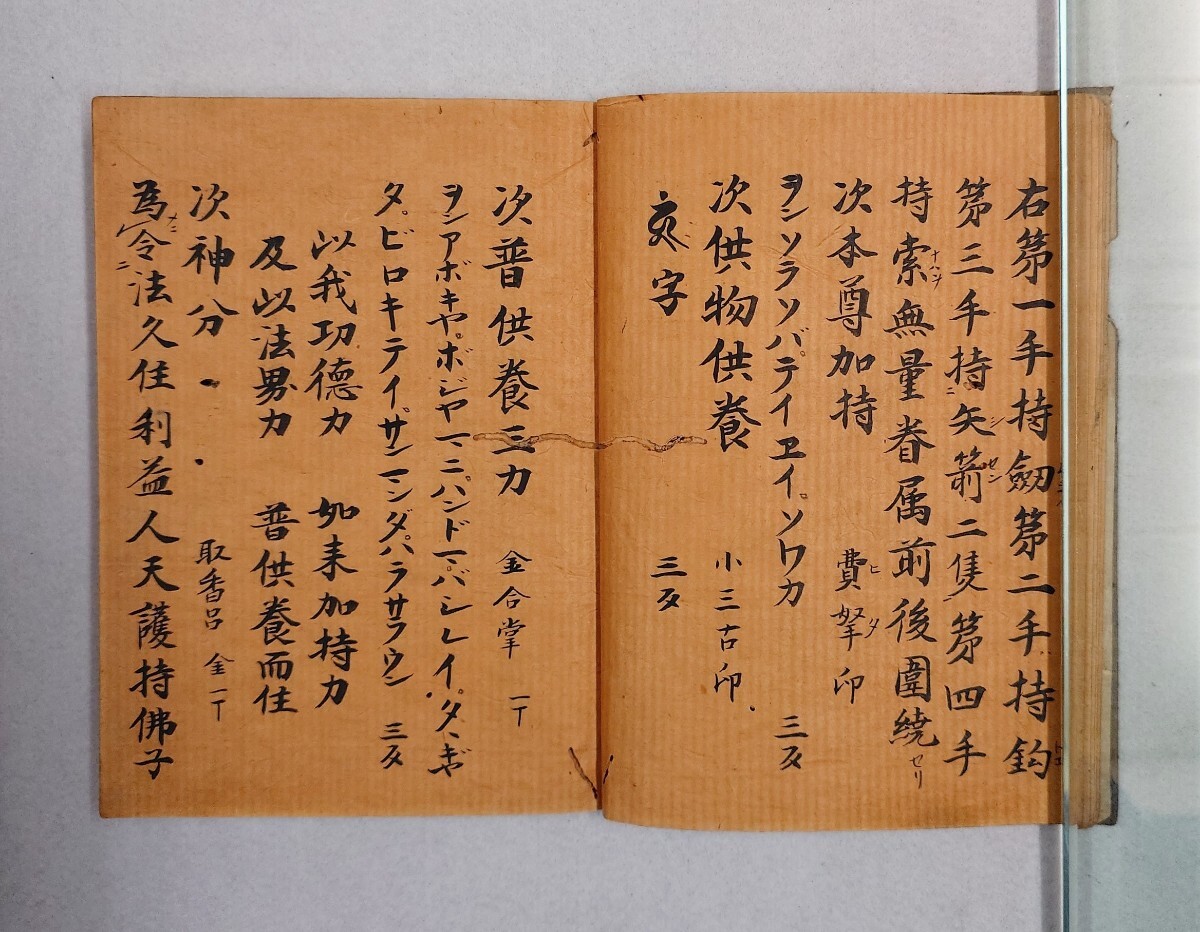 右第一手持劔第二手持鈎
第三手持矢箭二隻第四手
持索無量眷属前後圍繞セリ
次本尊加持 費拏印
ヲンソラソバテイエイソワカ 三反
次供物供養 小三古印
字 三反
次普供養三力 金合掌 一丁
ヲンアボキヤボジヤマニハンドマバシレイタタギヤ
タビロキテイサンマンダハラサラウン 三反
以我功德力 如来加持力
及以法界力 普供養而住
次神分 取香呂 金一丁
為令法久住利益人天護持佛子